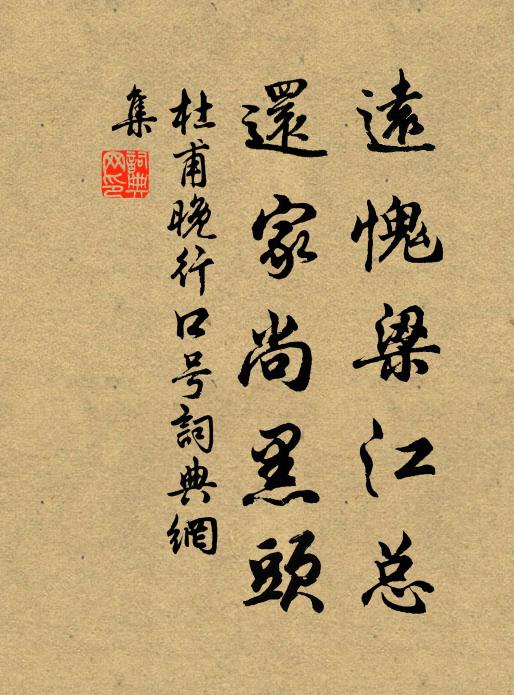 遠愧梁江总
還家尚黑頭
杜甫晚行口号詞典網
集
詞典網印